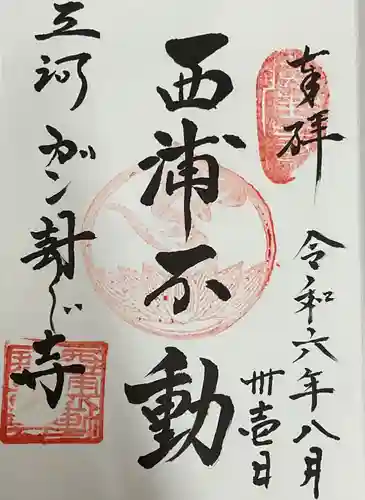 奉拝
令和六年八月
卅壱日
西浦不動
三河 ガン封じ寺